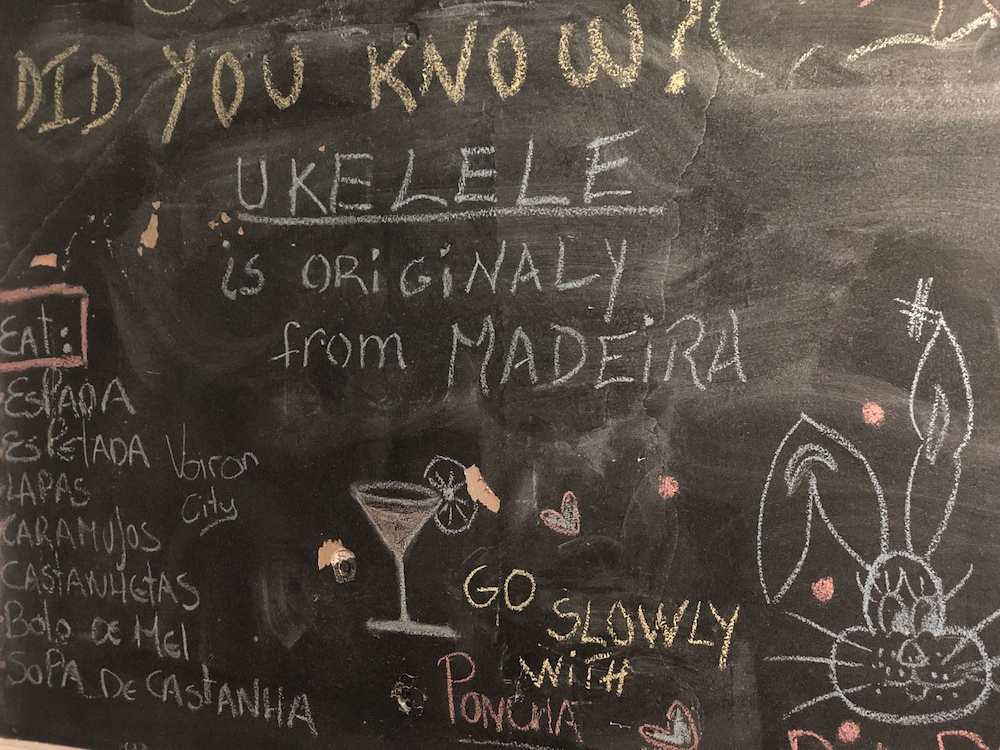 DID YOU KNOW?
UKELELE
is ORiGiNALY
from MADEiRA
EAt:
ESPADA
ESPETADA
LAPAS
CARAMUJOS
CASTANHETAS
Bolo DE MEl
SOPA DE CAStANHA
Voiron
City
GO SLOWLY
WiTH
PONCHA